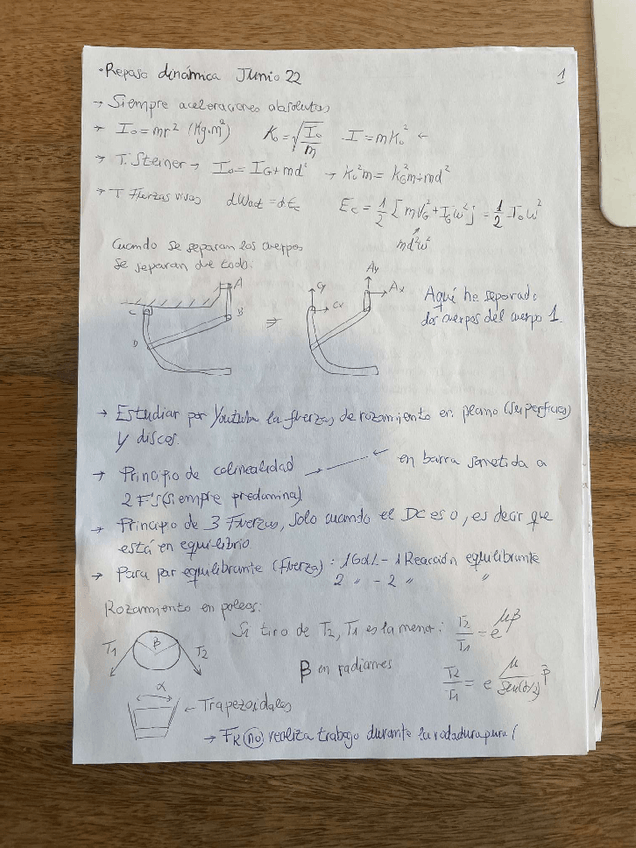 · Repaso dinámica Junio 22 1
→ Siempre aceleraciones absolutas
→ I₀ = mr² (Kg·m²) K₀ = √(I₀/m) I = mK₀² ←
→ T. Steiner → I₀ = I_G + md² → K₀²m = K_G²m + md²
→ T Fuerzas vivas dWact = dEc Ec = 1/2 [mV_G² + I_G ω²] = 1/2 I₀ω²
md²ω²
Cuando se separan los cuerpos
se separan de todo.
A
C B
D
⇒
Cy Cx
Ay Ax
Aquí he separado
dos cuerpos del cuerpo 1.
→ Estudiar por Youtube la fuerzas de rozamiento en plano (superficies)
y discos.
→ Principio de colinealidad → ← en barra sometida a
2 F's (siempre predomina)
→ Principio de 3 Fuerzas, solo cuando el DC es 0, es decir que
está en equilibrio
→ Para par equilibrante (fuerza): 1 GdL - 1 Reacción equilibrante
2 " - 2 " "
Rozamiento en poleas:
Si tiro de T2, T1 es la menor: T2/T1 = e^μβ
T1 β T2
β en radianes T2/T1 = e^(μ/sen(α/2) β)
α
← Trapezoidales
→ FR no realiza trabajo durante la rodadura pura!